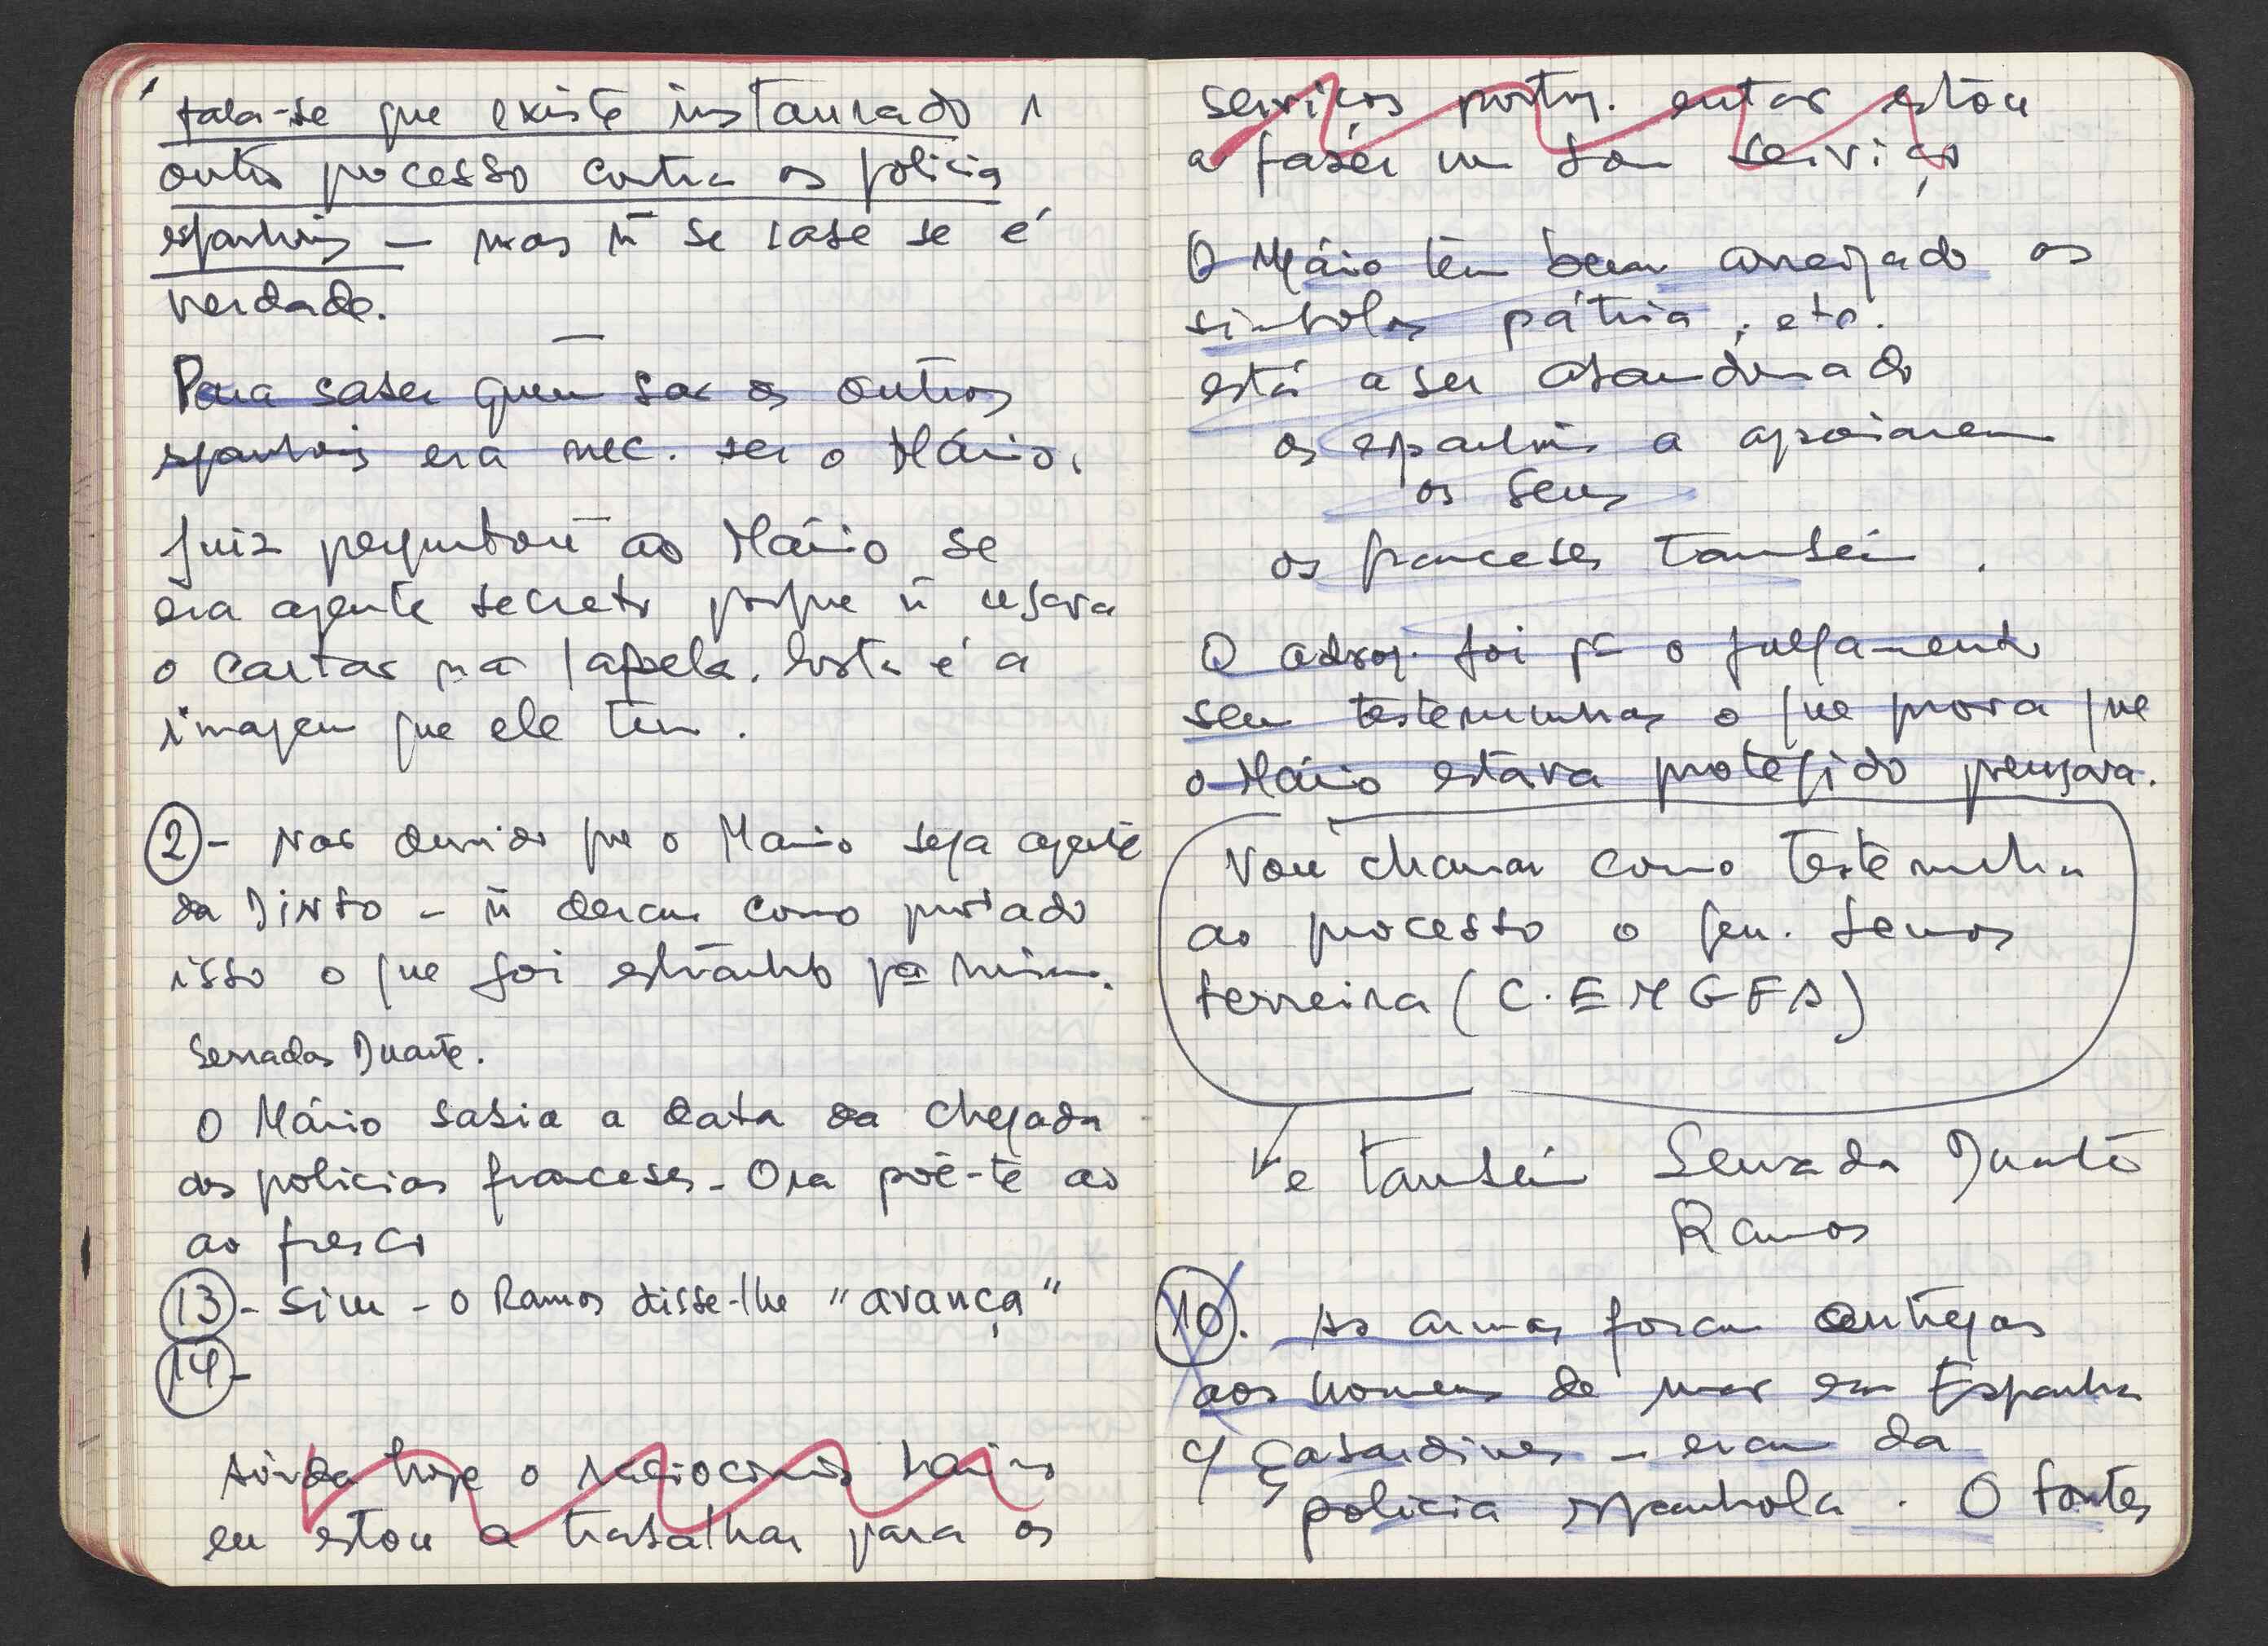 fala-se que existe instaurado 1
outro processo contra os policias
espanhois — mas ñ se sabe se é
verdade.
Para saber quem são os outros
espanhois era nec. ser o Mário.
Juiz perguntou ao Mário se
era agente secreto porque ñ usava
o cartão na lapela. Esta é a
imagem que ele tem.
(2) - Não duvido que o Mário seja agente
da DINFO - ñ deram como provado
isso o que foi estranho pª mim.
Serradas Duarte.
O Mário sabia a data da chegada
dos policias franceses. Ora põe-te ao
ao fresco
(13) - Sim - o Ramos disse-lhe "avança"
(14) -
Ainda hoje o raciocinio
eu estou a trabalhar para os
serviços portug. então estou
a fazer um bom serviço
O Mário tem bem arreigado os
simbolos pátria, etc.
está a ser abandonado
os espanhois a apoiarem
os seus
os franceses também.
O advog. foi pª o julgamento
sem testemunhas o que prova que
o Mário estava protegido pensava.
Vou chamar como testemunha
ao processo o Gen. Lemos
Ferreira (C.EMGFA)
e também Serrada Duarte
Ramos
(10). As armas foram entregas
aos homens do mar em Espanha
c/ gabardines - eram da
policia espanhola. O Fontes